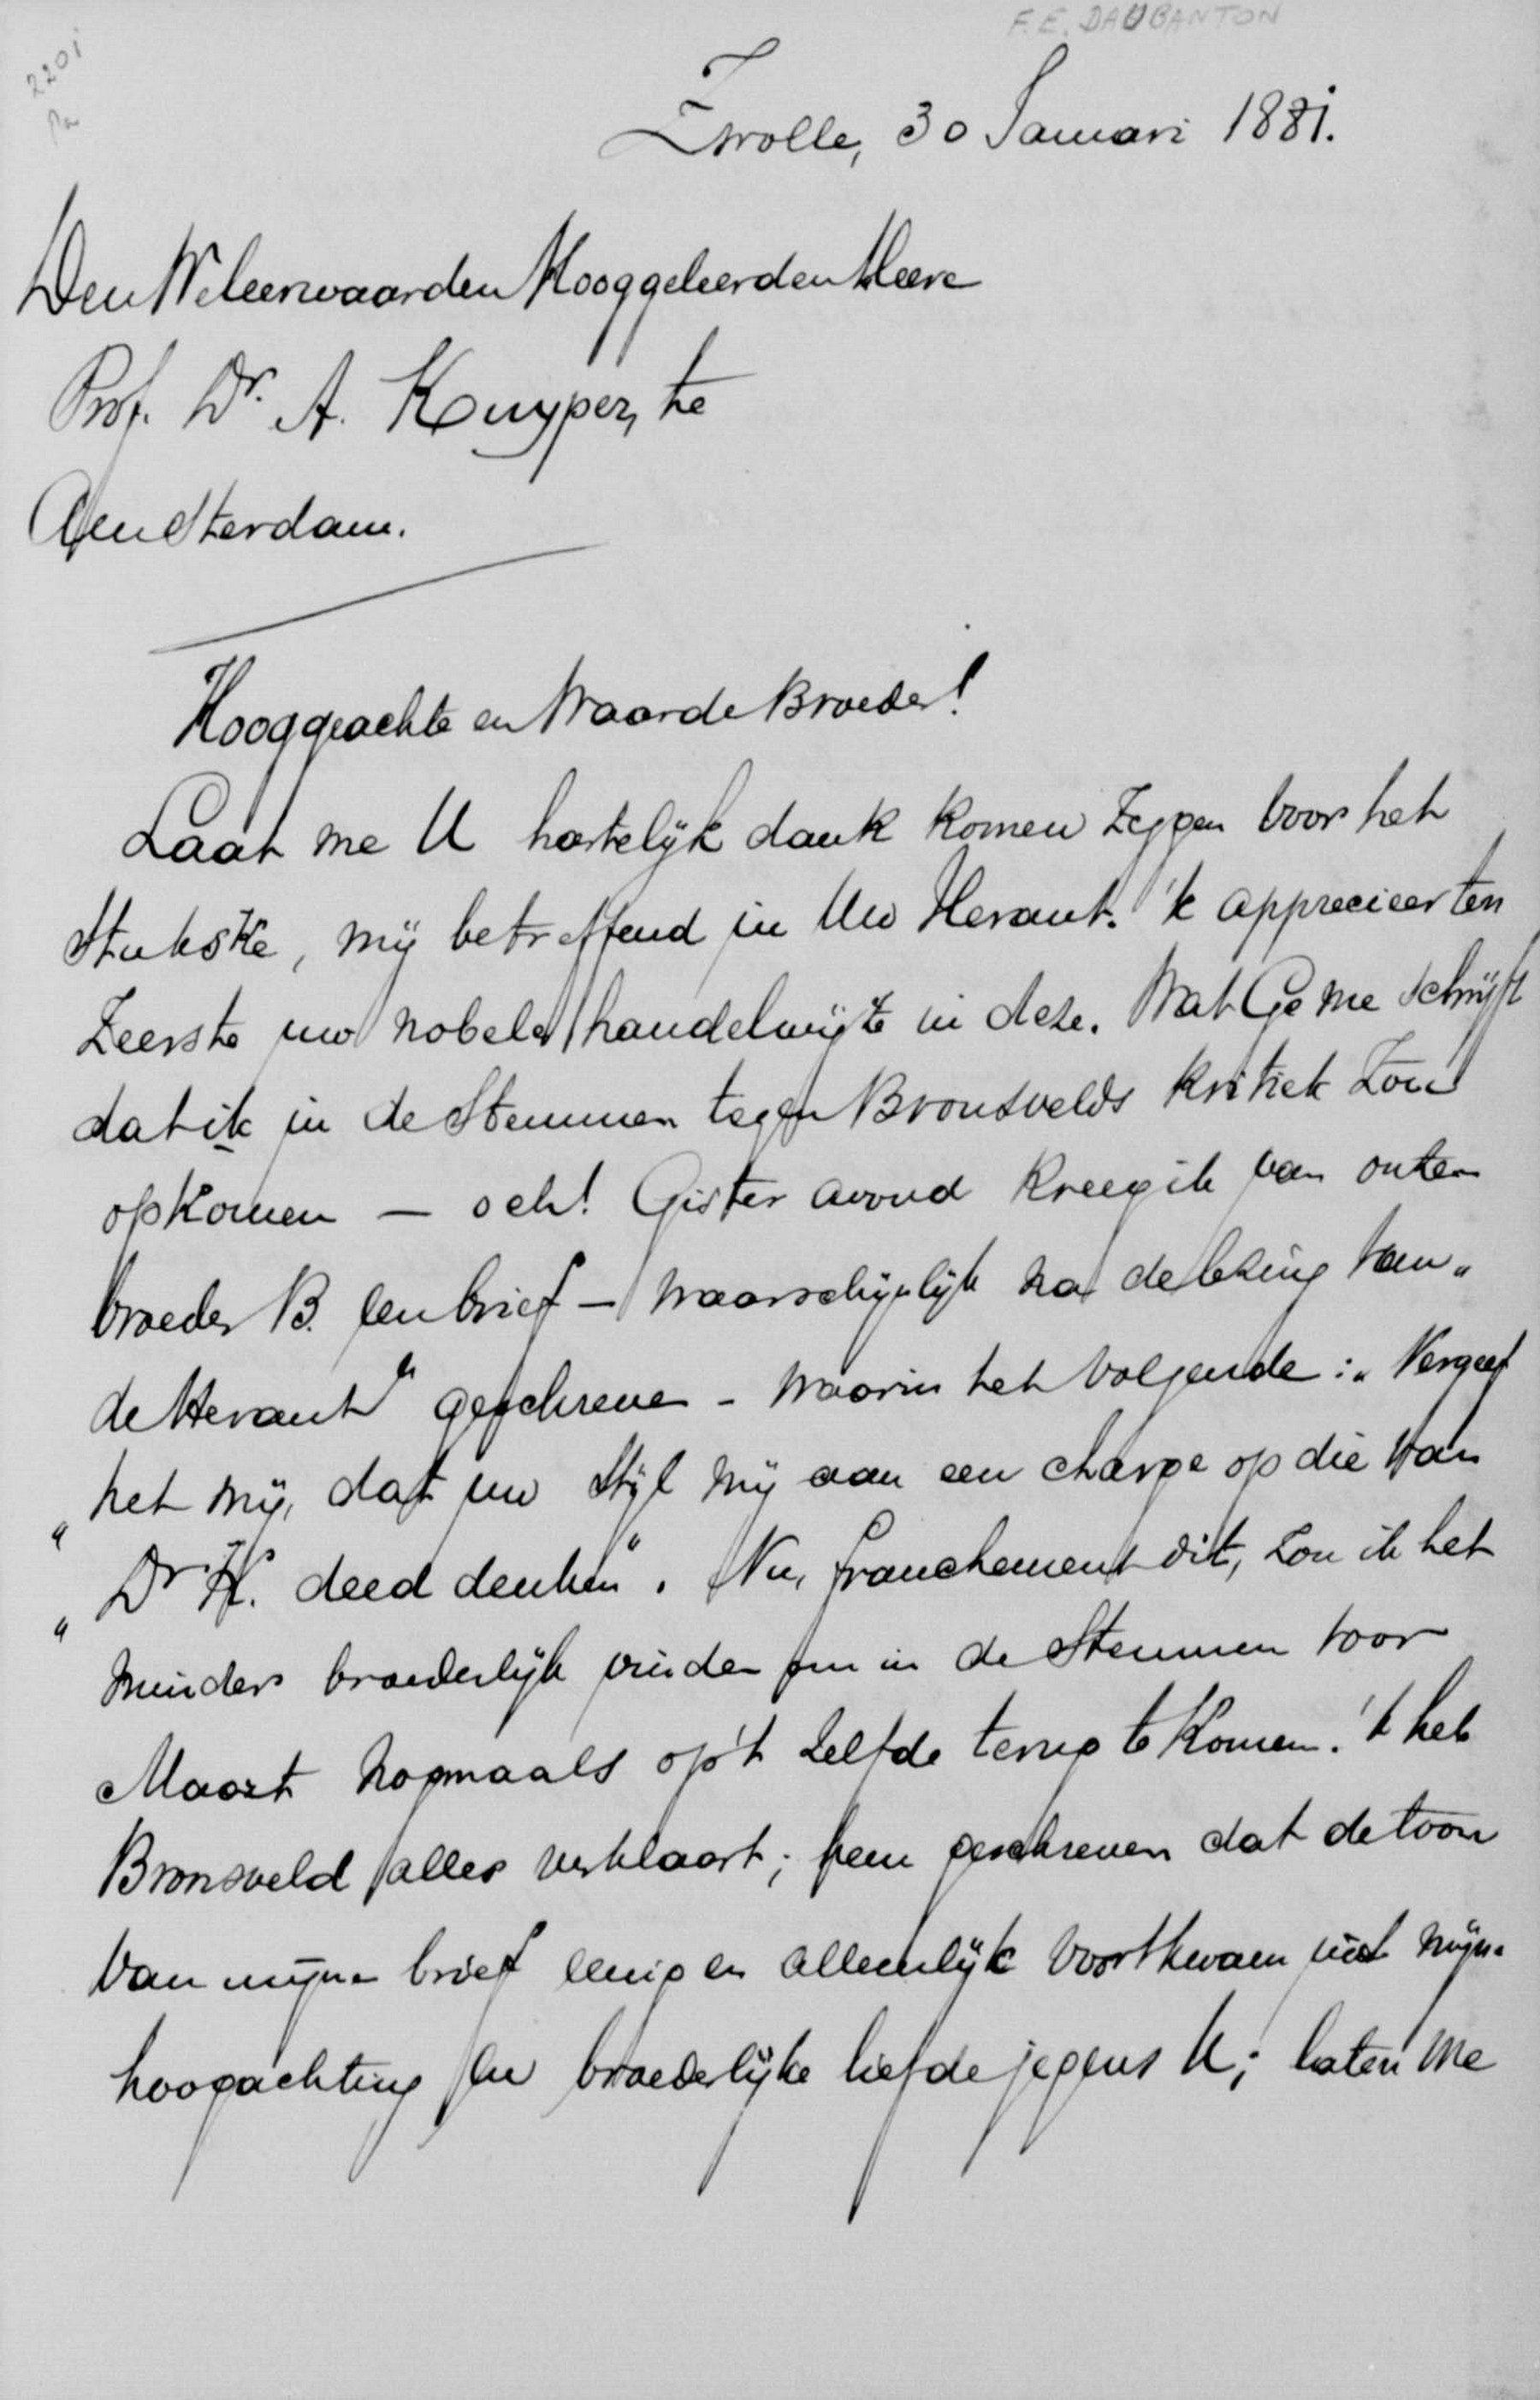 F.E. DAUBANTON
2201
Zwolle, 30 Januari 1881.
Den Weleerwaarden Hooggeleerden Heere
Prof. Dr. A. Kuyper, te
Amsterdam.
Hooggeachte en Waarde Broeder!
Laat me U hartelijk dank komen zeggen voor het
stukske, mij betreffend in Uw Heraut. 'k apprecieer ten
zeerste uw nobele handelwijze in deze. Wat Ge me schrijft
dat ik in de Stemmen tegen Bronsvelds kritiek zou
opkomen — och! Gister avond kreeg ik van onzen
broeder B. een brief — waarschijnlijk na de lezing van „
de Heraut" geschreven - waarin het volgende: „ Vergeef
„ het mij, dat uw stijl mij aan een charge op die van
„ Dr. K. deed denken". Nu, franchement dit, zou ik het
minder broederlijk vinden om in de Stemmen voor
Maart nogmaals op 't zelfde terug te komen. 'k heb
Bronsveld alles verklaart; hem geschreven dat de toon
van mijne brief eenig en alleenlijk voortkwam uit mijne
hoogachting en broederlijke liefde jegens U; laten me